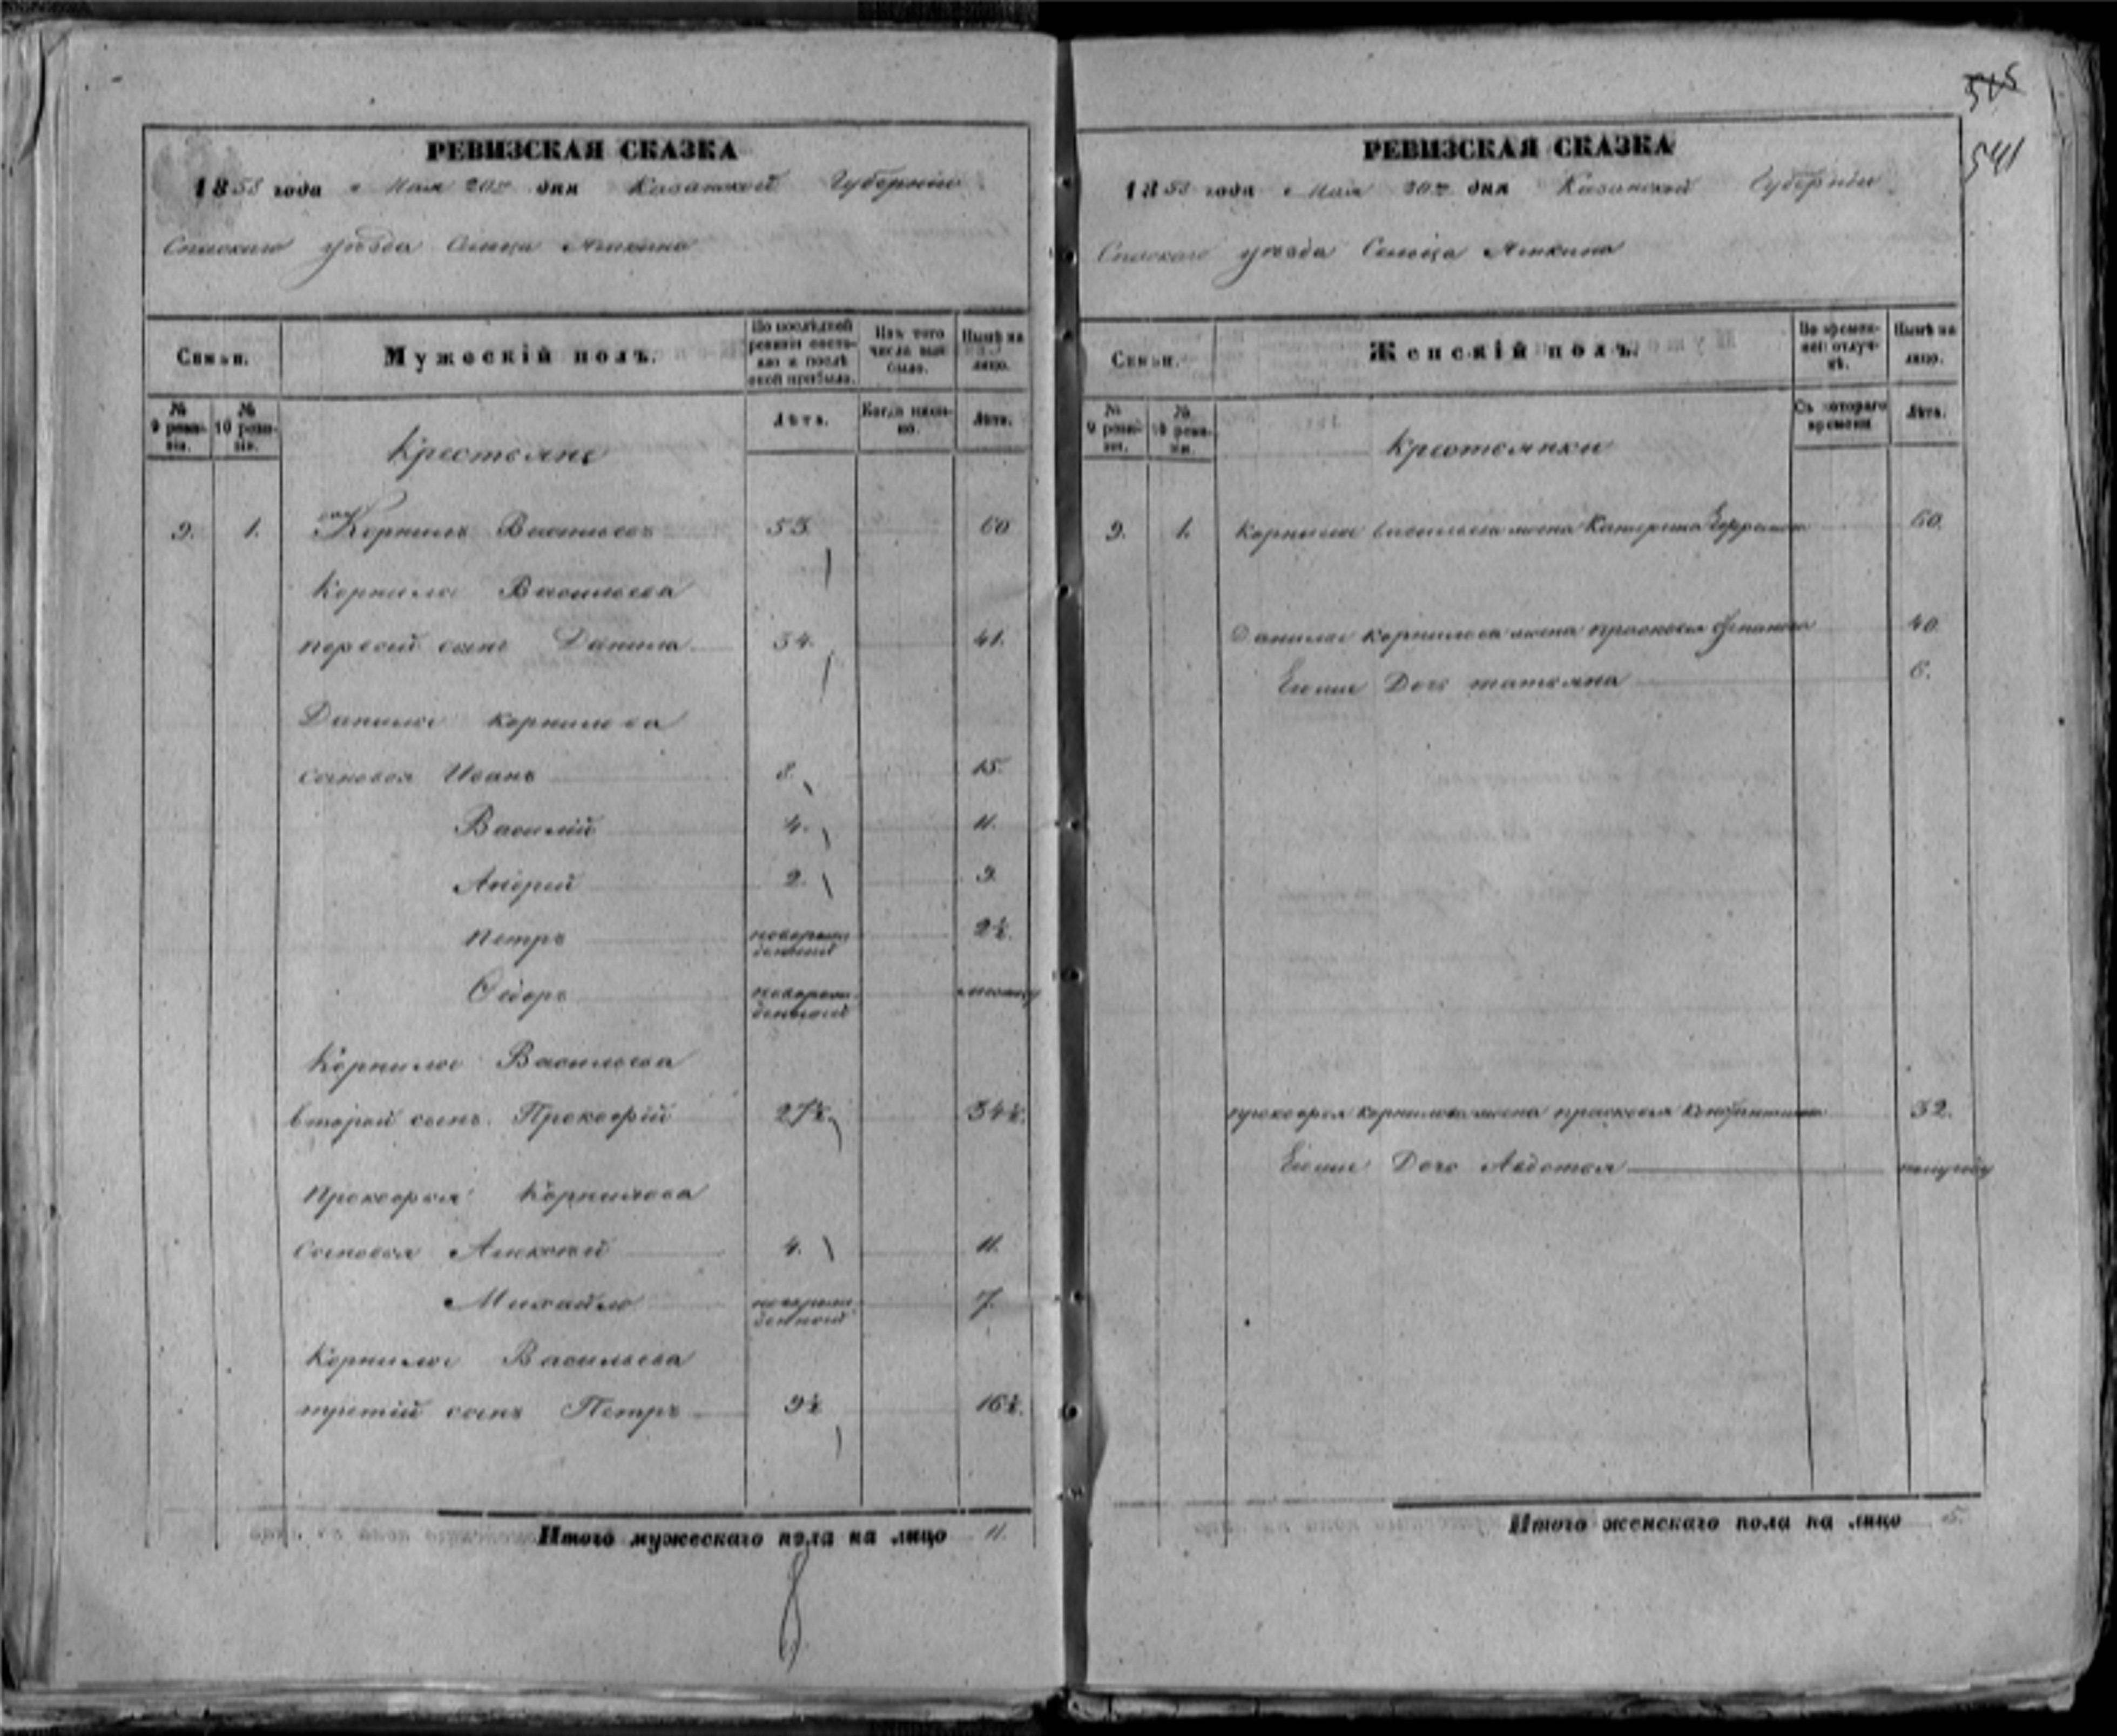 РЕВИЗСКАЯ СКАЗКА
1858 года Мая 20го дня Казанской Губернiи
Спаскаго уѣзда Сельца Аткина
Семьи.
Мужескiй полъ.
По послѣдней ревизiи состояло и послѣ оной прибыло.
Изъ того числа выбыло.
Нынѣ на лицо.
№ 9 ревизiи.
№ 10 ревизiи.
Лѣта.
Когда именно.
Лѣта.
Крестьяне
9. 1. Корнилъ Васильевъ 53. 60
Корнила Васильева
первой сынъ Данила 34. 41.
Данила Корнилова
сыновья Иванъ 8. 15.
Василiй 4. 11.
Андрей 2. 9.
Петръ новорож
денный 2½.
Ѳедоръ новорож
денный
Корнила Васильева
второй сынъ Прокофiй 27½ 34½.
Прокофья Корнилова
сыновья Алексей 4. 11.
Михайло новорож
денной 7.
Корнила Васильева
третiй сынъ Петръ 9½ 16½.
Итого мужескаго пола на лицо 11.
515
541
РЕВИЗСКАЯ СКАЗКА
1858 года Мая 20го дня Казанской Губернiи
Спаскаго уѣзда Сельца Аткина
Семьи.
Женскiй полъ.
Во временной отлучкѣ.
Нынѣ на лицо.
№ 9 ревизiи.
№ 10 ревизiи.
Съ котораго времени
Лѣта.
Крестьянки
9. 1. Корнила Васильева жена Катерина 60.
Данила Корнилова жена прасковья 40
Егоже Дочь татьяна 6.
прокофья Корнилова жена прасковья 32.
Егоже Дочь Авдотья полугоду
Итого женскаго пола на лицо 5.